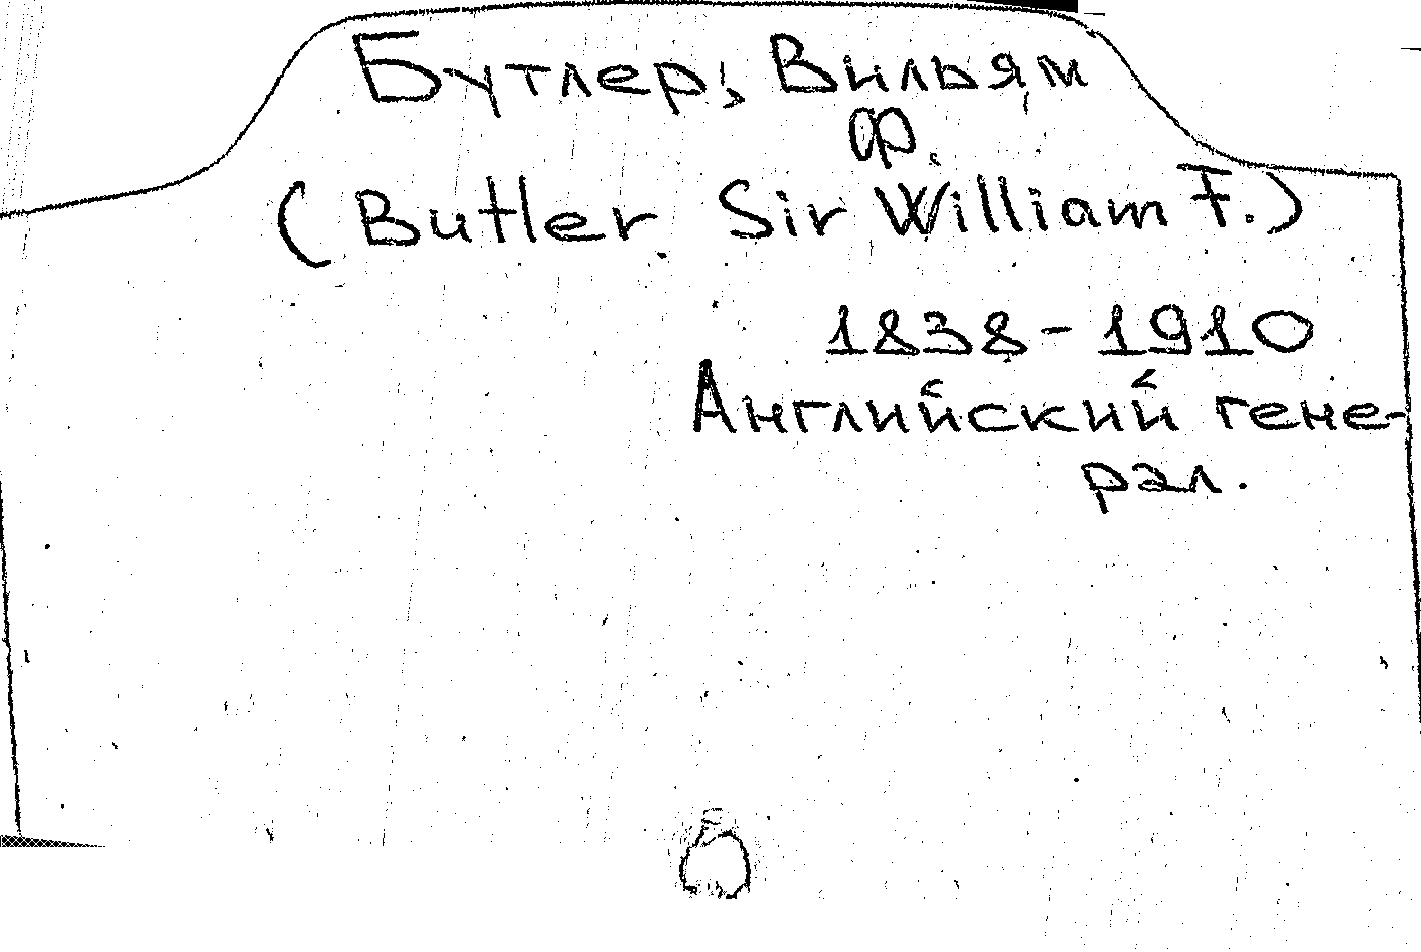 Бутлер, Вильям
Ф.
(Butler Sir William F.)
1838-1910
Английский гене-
рал.